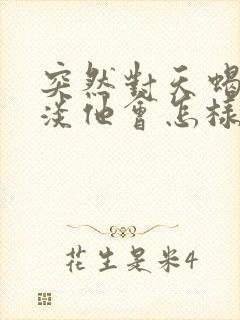 突然對天蝎
淡他會怎樣
花生是米4